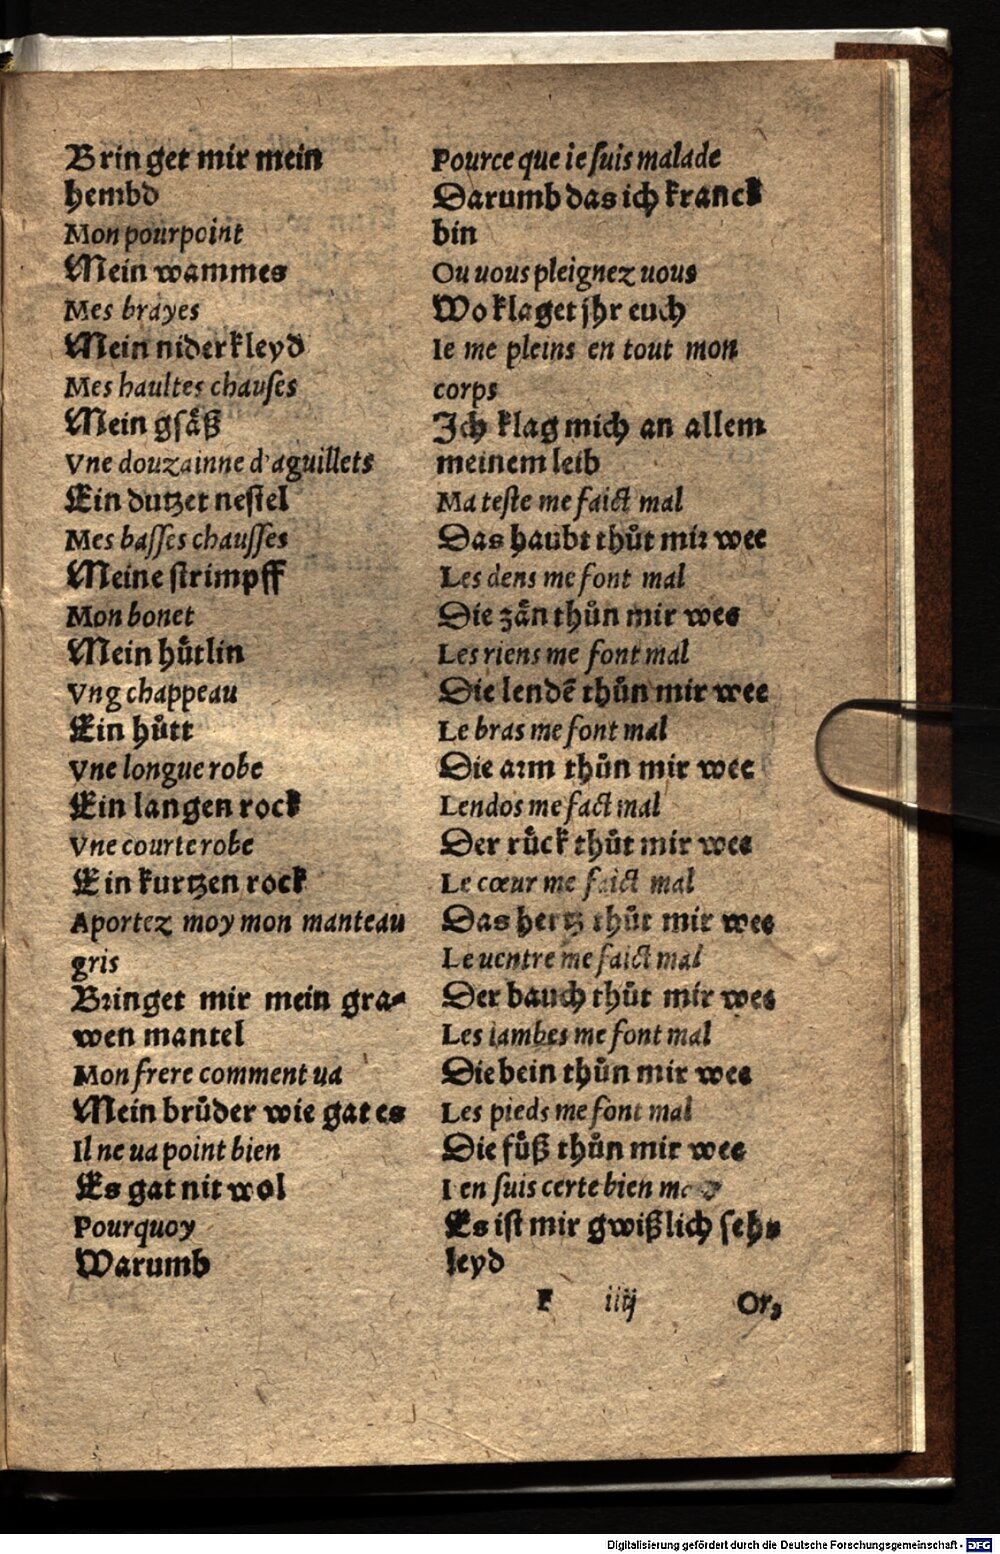 Bringet mir mein
hembd
Mon pourpoint
Mein wammes
Mes brayes
Mein niderkleyd
Mes haultes chauſes
Mein gſaͤß
Vne douzainne d'aguillets
Ein dutzet neſtel
Mes baſſes chauſſes
Meine ſtrimpff
Mon bonet
Mein huͤtlin
Vng chappeau
Ein huͦtt
Vne longue robe
Ein langen rock
Vne courte robe
Ein kurtzen rock
Aportez moy mon manteau
gris
Bringet mir mein gra⸗
wen mantel
Mon frere comment ua
Mein bruͦder wie gat es
Il ne ua point bien
Es gat nit wol
Pourquoy
Warumb
Pource que ie ſuis malade
Darumb das ich kranck
bin
Ou uous pleignez uous
Wo klaget jhr euch
Ie me pleins en tout mon
corps
Ich klag mich an allem
meinem leib
Ma teſte me faict mal
Das haubt thuͦt mir wee
Les dens me font mal
Die zaͤn thuͦn mir wee
Les riens me font mal
Die lendē thuͦn mir wee
Le bras me font mal
Die arm thuͦn mir wee
Lendos me fact mal
Der ruͤck thuͦt mir wee
Le cœur me faict mal
Das hertz thuͦt mir wee
Le uentre me faict mal
Der bauch thuͦt mir wee
Les iambes me font mal
Die bein thuͦn mir wee
Les pieds me font mal
Die fuͤß thuͦn mir wee
I en ſuis certe bien
Es iſt mir gwißlich ſehr
leyd
F iiij Or,
Digitalisierung gefördert durch die Deutsche Forschungsgemeinschaft - DFG